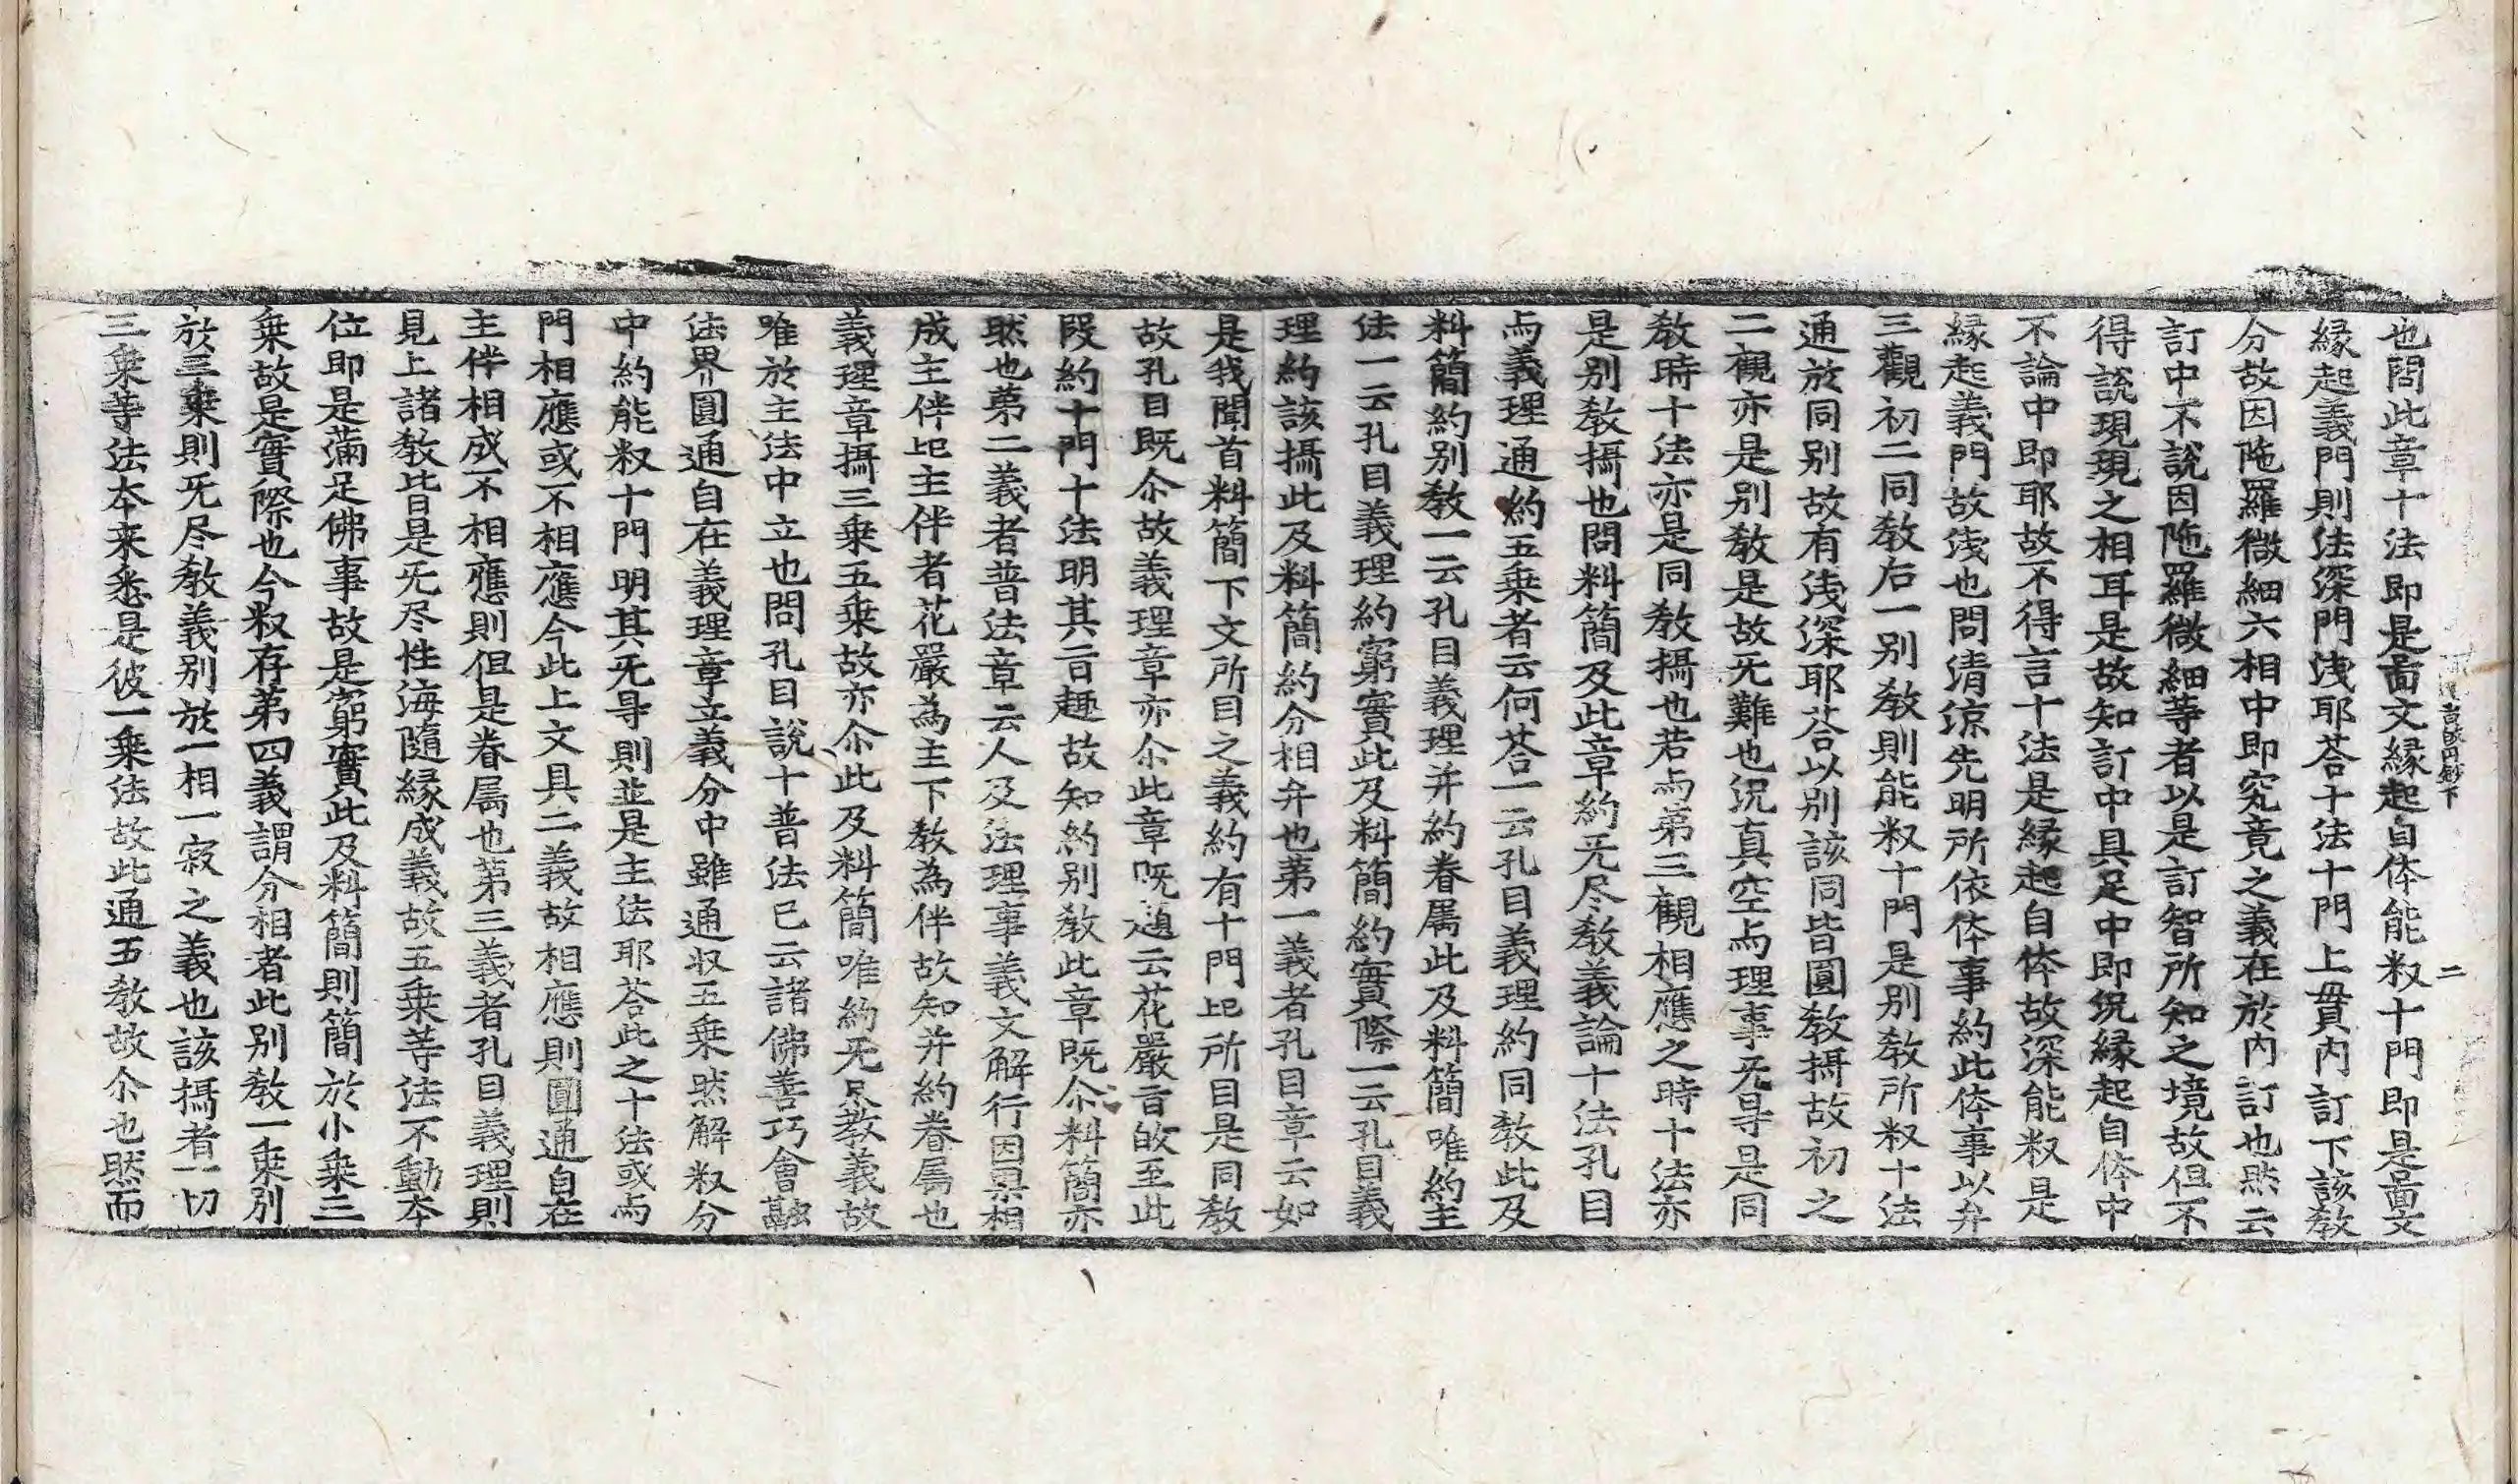 旨皈円鈔下 二
也問此章十法即是啚文縁起自体能叙十門即是啚文
縁起義門則法深門浅耶荅十法十門上貫内訂下該教
分故因陁羅微細六相中即究竟之義在於内訂也然云
訂中不說因陁羅微細等者以是訂智所知之境故但不
得說現現之相耳是故知訂中具足中即況縁起自体中
不論中即耶故不得言十法是縁起自体故深能叙是
縁起義門故浅也問清凉先明所依体事約此体事以弁
三觀初二同教后一別教則能叙十門是別教所叙十法
通於同別故有浅深耶荅以別該同皆圓教攝故初之
二觀亦是別教是故旡難也況真空与理事旡㝵是同
教時十法亦是同教攝也若与第三觀相應之時十法亦
是別教攝也問料簡及此章約旡尽教義論十法孔目
与義理通約五乗者云何荅一云孔目義理約同教此及
料簡約別教一云孔目義理并約眷属此及料簡唯約主
法一云孔目義理約窮實此及料簡約實際一云孔目義
理約該攝此及料簡約分相弁也第一義者孔目章云如
是我聞首料簡下文所目之義約有十門比所目是同教
故孔目既尒故義理章亦尒此章既題云花嚴旨皈至此
段約十門十法明其旨趣故知約別教此章既尒料簡亦
然也第二義者普法章云人及法理事義文解行因果相
成主伴比主伴者花嚴為主下教為伴故知并約眷属也
義理章攝三乗五乗故亦尒此及料簡唯約旡尽教義故
唯於主法中立也問孔目說十普法已云諸佛善巧會融
法界〃圓通自在義理章立義分中雖通収五乗然解叙分
中約能叙十門明其旡㝵則並是主法耶荅此之十法或与
門相應或不相應今此上文具二義故相應則圓通自在
主伴相成不相應則但是眷属也第三義者孔目義理則
見上諸教皆是旡尽性海隨縁成義故五乗等法不動本
位即是滿足佛事故是窮實此及料簡則簡於小乗三
乗故是實際也今叙存第四義謂分相者此別教一乗別
於三乗則旡尽教義別於一相一寂之義也該攝者一切
三乗等法本来悉是彼一乗法故此通五教故尒也然而